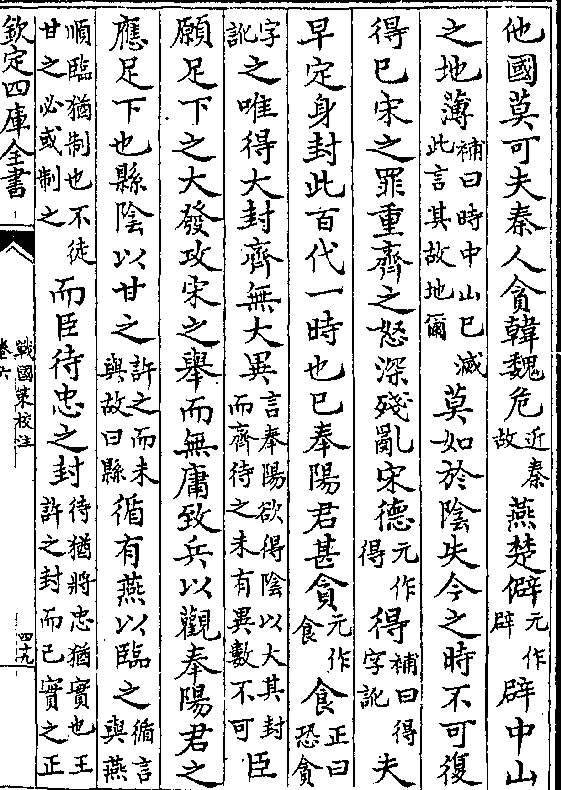 他國莫可夫秦人貪韓魏危近秦故燕楚僻元作辟辟中山
之地薄補曰時中山已滅此言其故地爾莫如於陰失今之時不可復
得已宋之罪重齊之怒深殘亂宋德元作得得補曰得字訛夫
早定身封此百代一時也已奉陽君甚貪元作食食正曰恐貪
字訛之唯得大封齊無大異言奉陽欲得陰以大其封而齊待之未有異數不可臣
願足下之大發攻宋之舉而無庸致兵以觀奉陽君之
應足下也縣陰以甘之許之而未與故曰縣循有燕以臨之循言與燕
順臨猶制也不徒甘之必或制之而臣待忠之封待猶將忠猶實也王許之封而已實之正
欽定四庫全書
戰國策校注
卷六
四十九